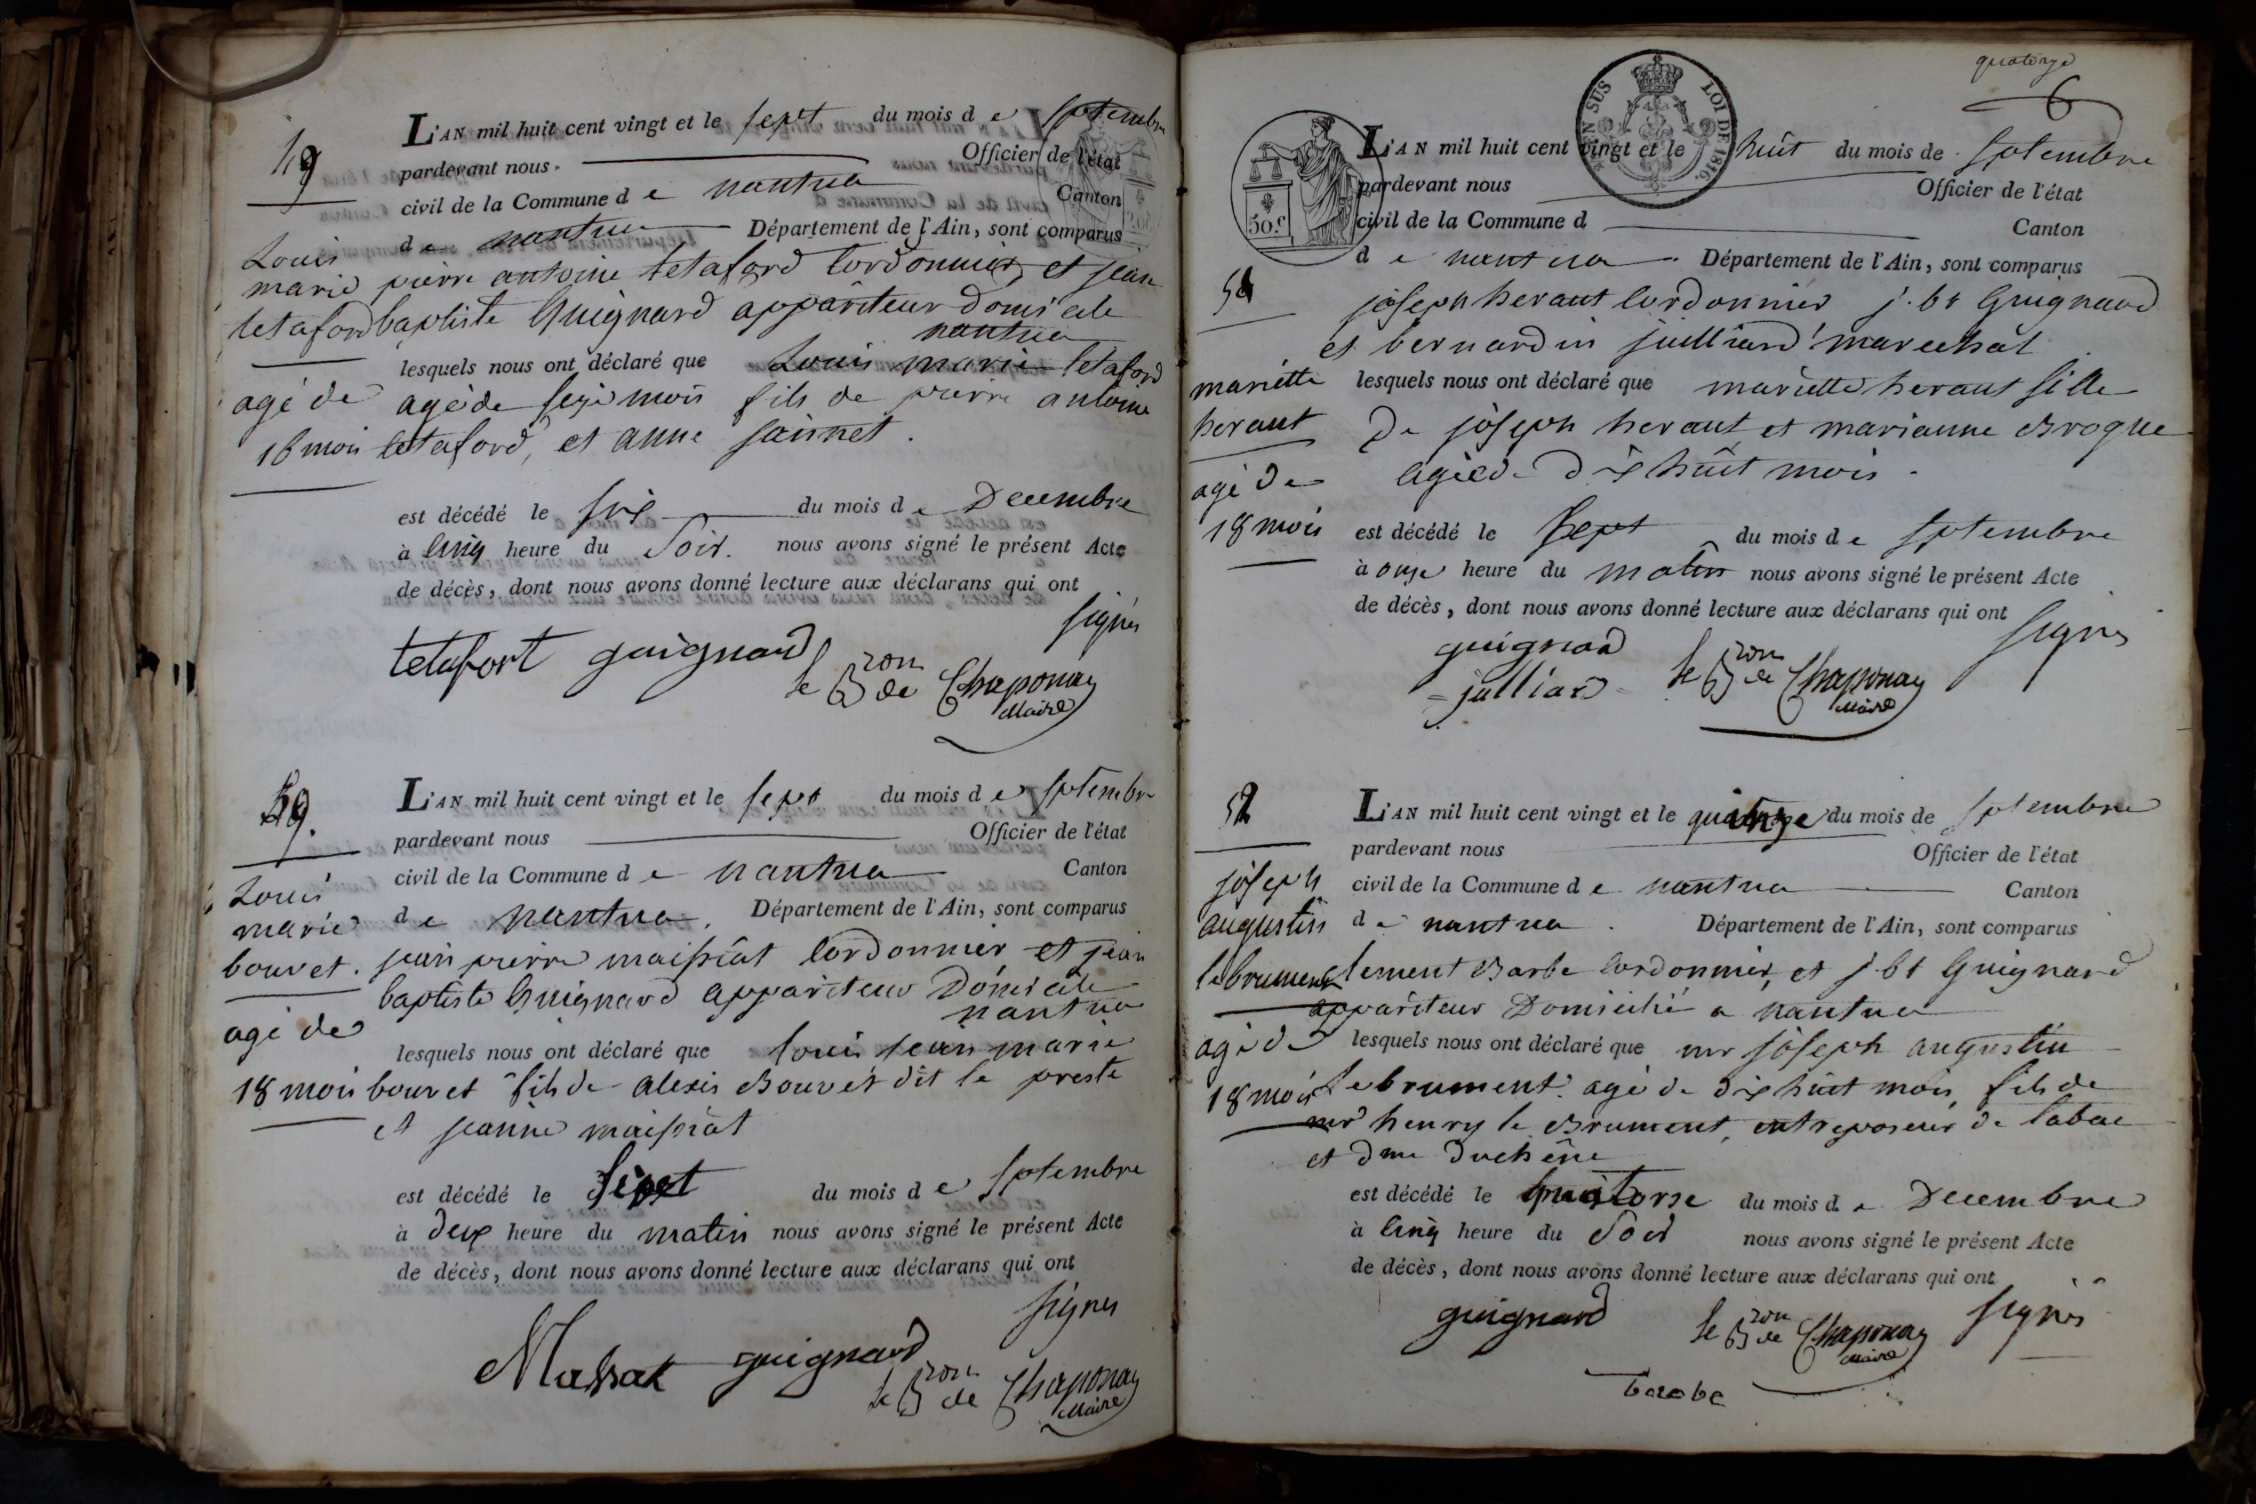 49
Louis
marie
tetaford
agé de
16 mois
L'AN mil huit cent vingt et le sept du mois d e septembre
pardevant nous Officier de l'état
civil de la Commune d e nantua Canton
d e nantua Département de l'Ain, sont comparus
pierre antoine tetaford Cordonnier, et jean
baptiste Guignard appariteur domicile
nantua
lesquels nous ont déclaré que Louis marie tetaford
agé de seize mois fils de pierre antoine
tetaford, et anne
est décédé le six du mois d e Decembre
à Cinq heure du Soir. nous avons signé le présent Acte
de décès, dont nous avons donné lecture aux déclarans qui ont
signés
tetafort guignard
le Bron de Chaponay
Maire
Louis
marie
bouvet.
agé de
18 mois
L'AN mil huit cent vingt et le sept du mois d e septembre
pardevant nous Officier de l'état
civil de la Commune d e nantua Canton
d e nantua. Département de l'Ain, sont comparus
jean pierre maissiat Cordonnier et jean
baptiste Guignard appariteur Domicile
nantua
lesquels nous ont déclaré que louis jean marie
bouvet fils de alexis Bouvet dit le preste
et jeanne maissiat
est décédé le sept du mois d e septembre
à deux heure du matin nous avons signé le présent Acte
de décès, dont nous avons donné lecture aux déclarans qui ont
signés
Massat guignard
le Bron de Chaponay
Maire
quatorze
6
EN SUS LOI DE 1816.
50 c
mariette
heraut
agé de
18 mois
L'AN mil huit cent vingt et le huit du mois de septembre
pardevant nous Officier de l'état
civil de la Commune d Canton
d e nantua. Département de l'Ain, sont comparus
joseph heraut Cordonnier j. bt Guignard
et bernardin juilliard marechal
lesquels nous ont déclaré que mariette heraut fille
De joseph heraut et marianne Broque
agée de dix huit mois.
est décédé le sept du mois d e septembre
à onze heure du matin nous avons signé le présent Acte
de décès, dont nous avons donné lecture aux déclarans qui ont
signés
guignard
julliard
le Bron de Chaponay
Maire
52
joseph
augustin
lebrument
agé de
18 mois
L'AN mil huit cent vingt et le quinze du mois de septembre
pardevant nous Officier de l'état
civil de la Commune d e nantua Canton
d e nantua. Département de l'Ain, sont comparus
Clement Barbe Cordonnier, et j. bt Guignard
appariteur Domicilié a nantua
lesquels nous ont déclaré que mr joseph augustin
Lebrument agé de dix huit mois, fils de
mr henry le Brument, entreposeur de tabac
et dme duchêne
est décédé le quatorse du mois d e Decembre
à Cinq heure du Soir nous avons signé le présent Acte
de décès, dont nous avons donné lecture aux déclarans qui ont
signés
guignard
le Bron de Chaponay
Maire